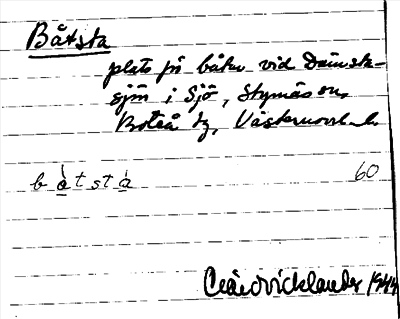 Båtsta
plats för båtar vid Dämsta-
sjön i Sjö, Styrnäs sn,
Boteå tg, Västernorrl. l.
båtstà 60
Wicklander 1944